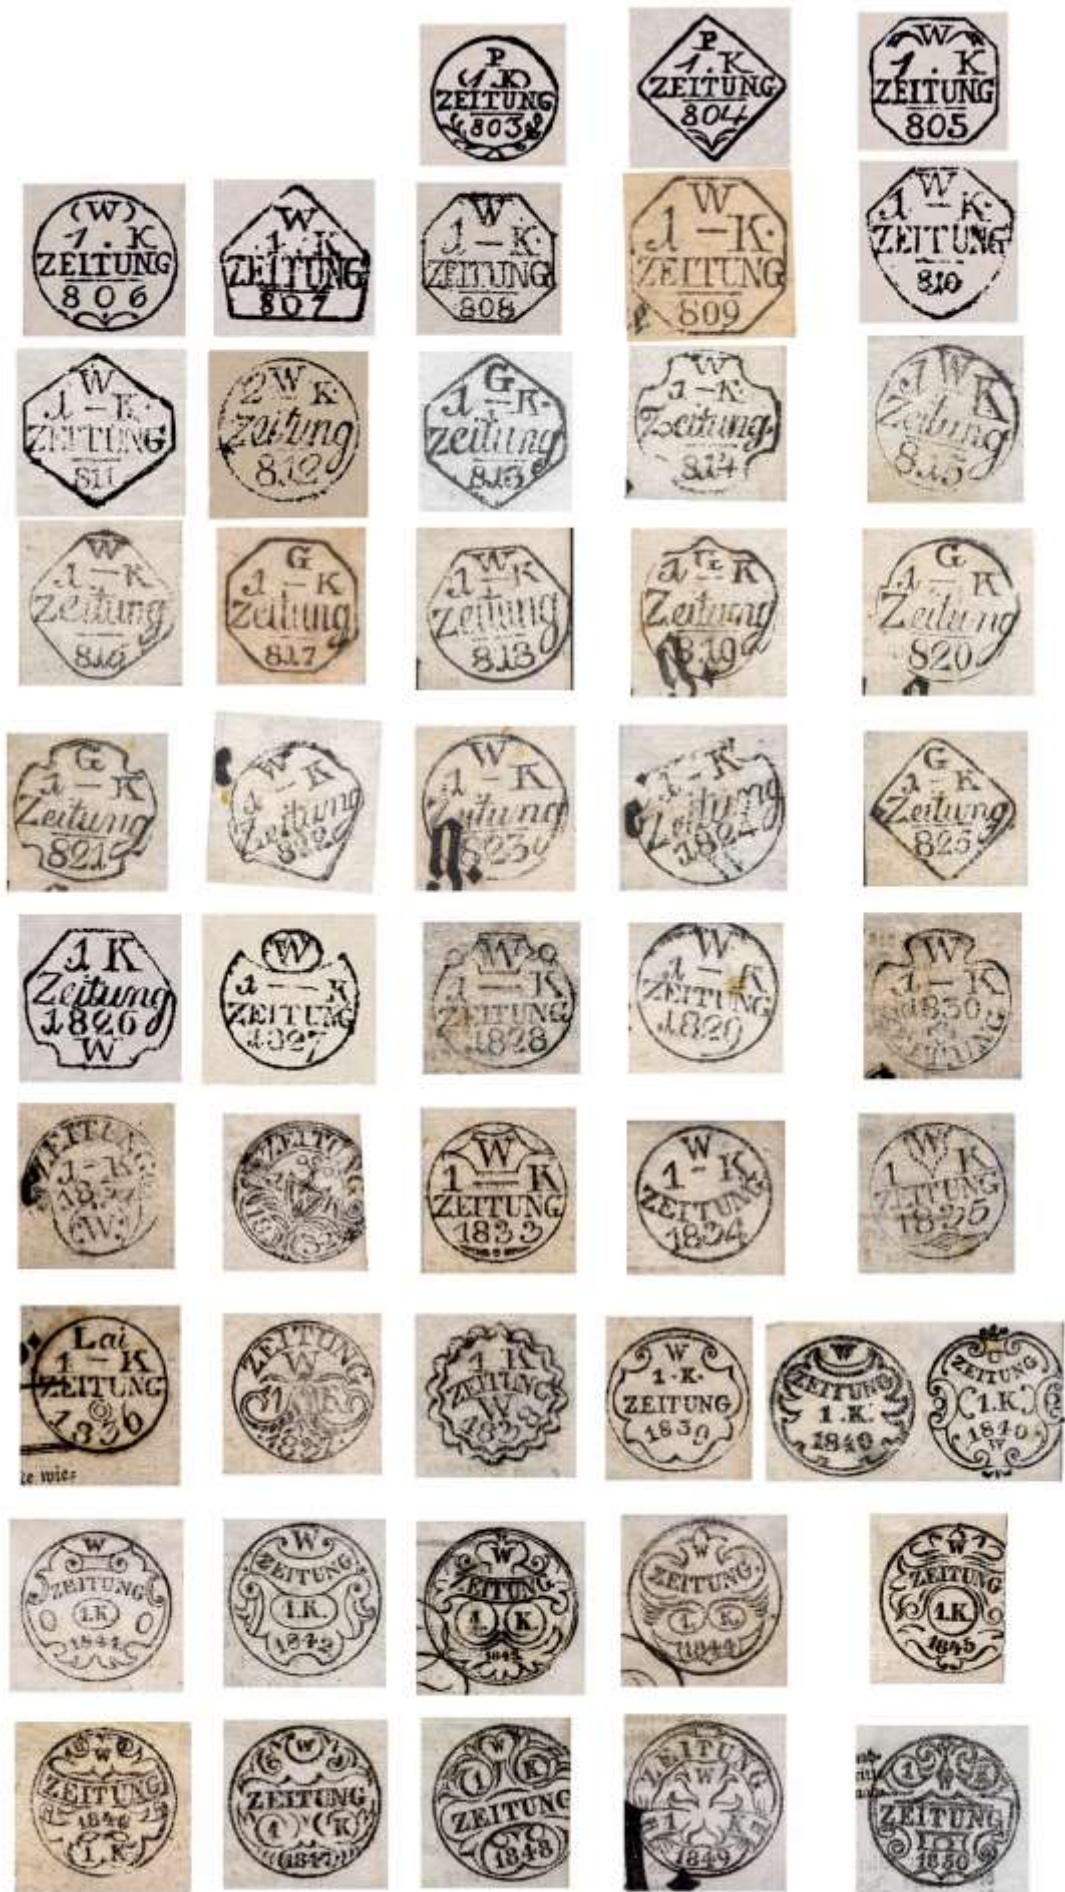 P
1.K
ZEITUNG
803
P
1.K
ZEITUNG
804
W
1.K
ZEITUNG
805
(W)
1.K
ZEITUNG
806
W
1.K
ZEITUNG
807
W
1–K.
ZEITUNG
808
W
1–K.
ZEITUNG
809
W
1–K.
ZEITUNG
810
W
1–K.
ZEITUNG
811
2 W K
Zeitung
812
G
1–K.
Zeitung
813
W
1–K.
Zeitung
814
1 W K
Zeitung
815
W
1–K
Zeitung
816
G
1–K
Zeitung
817
W
1–K
Zeitung
818
G
1–K
Zeitung
819
G
1–K
Zeitung
820
G
1–K
Zeitung
821
W
1–K
Zeitung
822
W
1–K
Zeitung
823
1–K
Zeitung
1824
G
1–K
Zeitung
825
1 K
Zeitung
1826
W
W
1––K
ZEITUNG
1827
W
1–K
ZEITUNG
1828
W
1–K
ZEITUNG
1829
W
1–K
1830
ZEITUNG
ZEITUNG
1–K
(W)
ZEITUNG
W
1–K
ZEITUNG
1833
W
1–K
ZEITUNG
1834
W
1 K
ZEITUNG
1835
Lai
1–K
ZEITUNG
1836
te wies
ZEITUNG
W
1 K
1837
1 K
ZEITUNG
W
1838
W
1.K.
ZEITUNG
1839
W
ZEITUNG
1.K.
1840
ZEITUNG
1.K.
1840
W
W
ZEITUNG
1.K.
1841
W
ZEITUNG
1.K.
1842
W
ZEITUNG
1. K.
1843
W
ZEITUNG.
1. K.
1844
W
ZEITUNG
1.K.
1845
W
ZEITUNG
1846
1.K
W
ZEITUNG
1 K
1847
W
1 K
ZEITUNG
1848
ZEITUNG
W
1 K
1849
1 K
W
ZEITUNG
1850